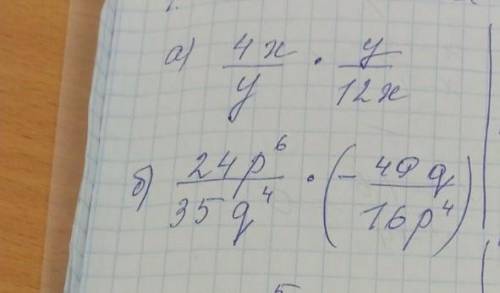 а) 4x/y · y/12x
б) 24p⁶/35q⁴ · (− 49q/16p⁴)